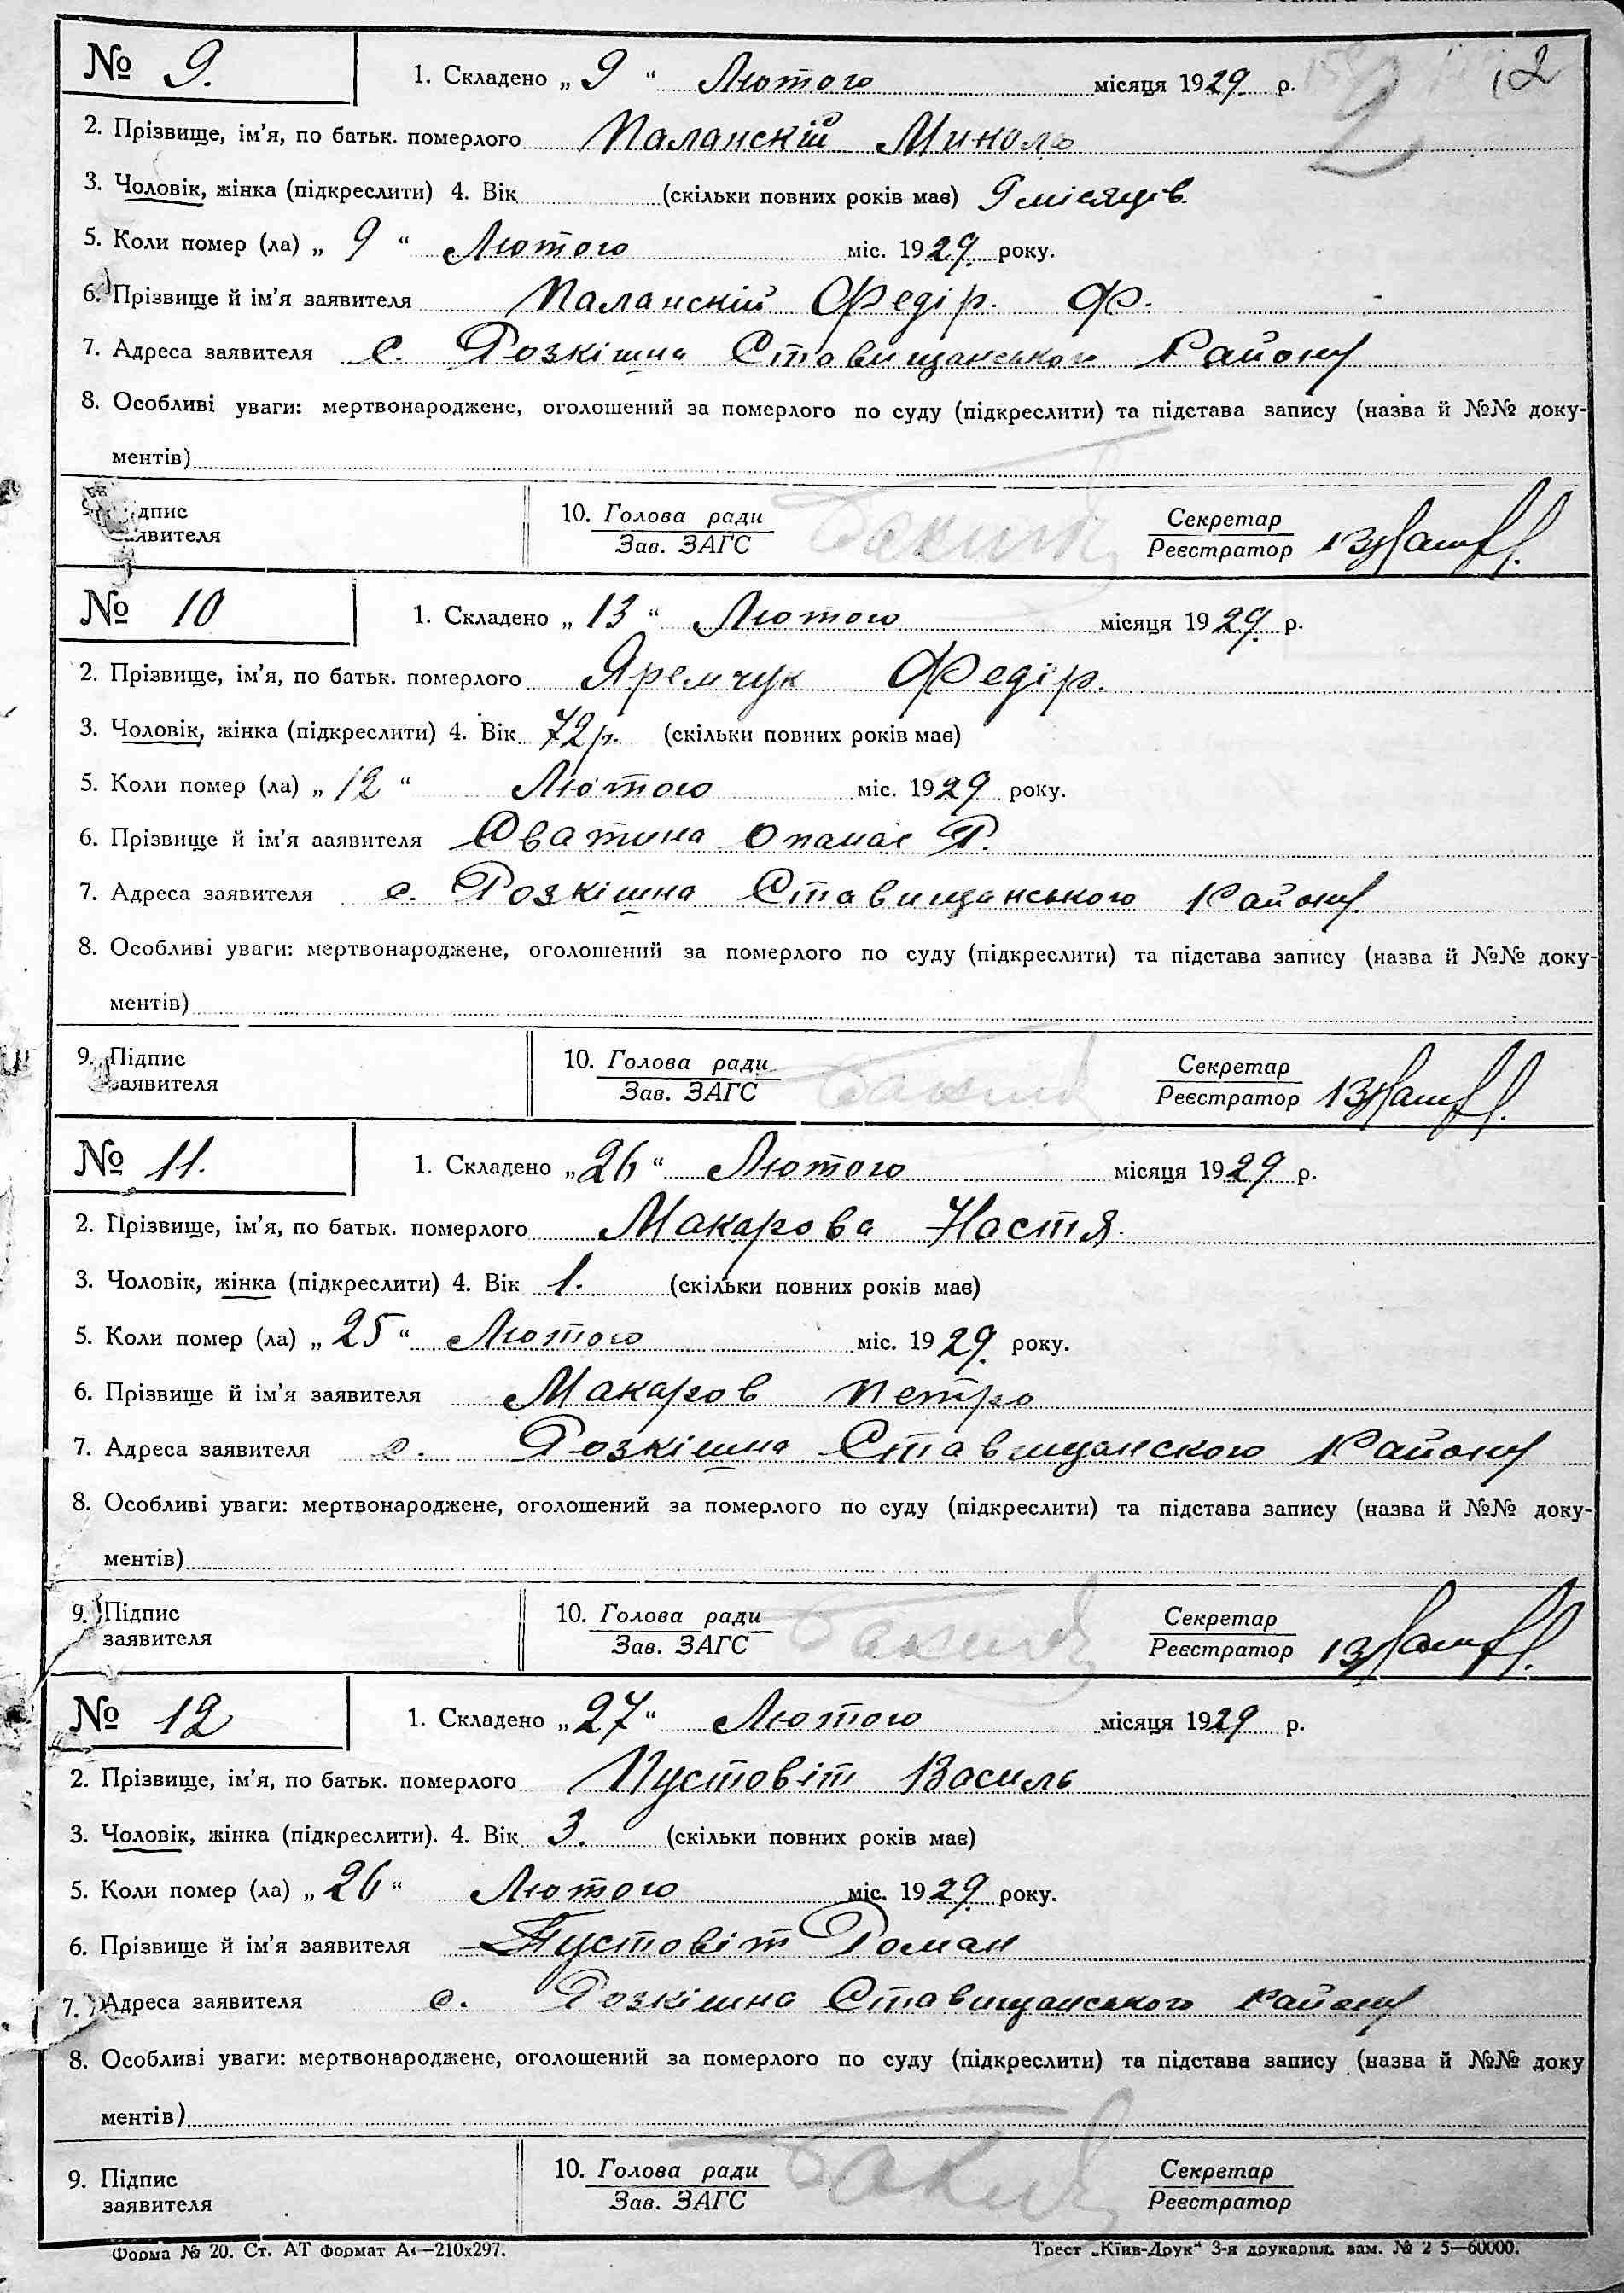 № 9. 1. Складено „ 9 “ Лютого місяця 1929. р. 12
2
2. Прізвище, ім'я, по батьк. померлого Паланскій Миколь
3. Чоловік, жінка (підкреслити) 4. Вік (скільки повних років має) 9 місяців.
5. Коли помер (ла) „ 9 “ Лютого міс. 1929. року.
6. Прізвище й ім'я заявителя Паланскій Федір. Ф.
7. Адреса заявителя с. Розкішна Ставищанського Району
8. Особливі уваги: мертвонароджене, оголошений за померлого по суду (підкреслити) та підстава запису (назва й №№ доку-
ментів)
дпис 10. Голова ради Секретар
явителя Зав. ЗАГС Реєстратор
№ 10 1. Складено „ 13 “ Лютого місяця 1929. р.
2. Прізвище, ім'я, по батьк. померлого Яремчук Федір.
3. Чоловік, жінка (підкреслити) 4. Вік 72 р. (скільки повних років має)
5. Коли помер (ла) „ 12 “ Лютого міс. 1929 року.
6. Прізвище й ім'я заявителя Сватина Опанас Р.
7. Адреса заявителя с. Розкішна Ставищанського Району.
8. Особливі уваги: мертвонароджене, оголошений за померлого по суду (підкреслити) та підстава запису (назва й №№ доку-
ментів)
9. Підпис 10. Голова ради Секретар
заявителя Зав. ЗАГС Реєстратор
№ 11. 1. Складено „ 26 “ Лютого місяця 1929 р.
2. Прізвище, ім'я, по батьк. померлого Макарова Настя.
3. Чоловік, жінка (підкреслити) 4. Вік 1. (скільки повних років має)
5. Коли помер (ла) „ 25 “ Лютого міс. 1929. року.
6. Прізвище й ім'я заявителя Макаров Петро
7. Адреса заявителя с. Розкішна Ставищанского Району
8. Особливі уваги: мертвонароджене, оголошений за померлого по суду (підкреслити) та підстава запису (назва й №№ доку-
ментів)
9. Підпис 10. Голова ради Секретар
заявителя Зав. ЗАГС Реєстратор
№ 12 1. Складено „ 27 “ Лютого місяця 1929 р.
2. Прізвище, ім'я, по батьк. померлого Пустовіт Василь
3. Чоловік, жінка (підкреслити). 4. Вік 3. (скільки повних років має)
5. Коли помер (ла) „ 26 “ Лютого міс. 1929. року.
6. Прізвище й ім'я заявителя Пустовіт Роман
7. Адреса заявителя с. Розкішна Ставищанського Району
8. Особливі уваги: мертвонароджене, оголошений за померлого по суду (підкреслити) та підстава запису (назва й №№ доку
ментів)
9. Підпис 10. Голова ради Секретар
заявителя Зав. ЗАГС Реєстратор
Форма № 20. Ст. АТ Формат А4—210x297. Трест „Київ-Друк“ 3-я друкарня, зам. № 2 5—60000.